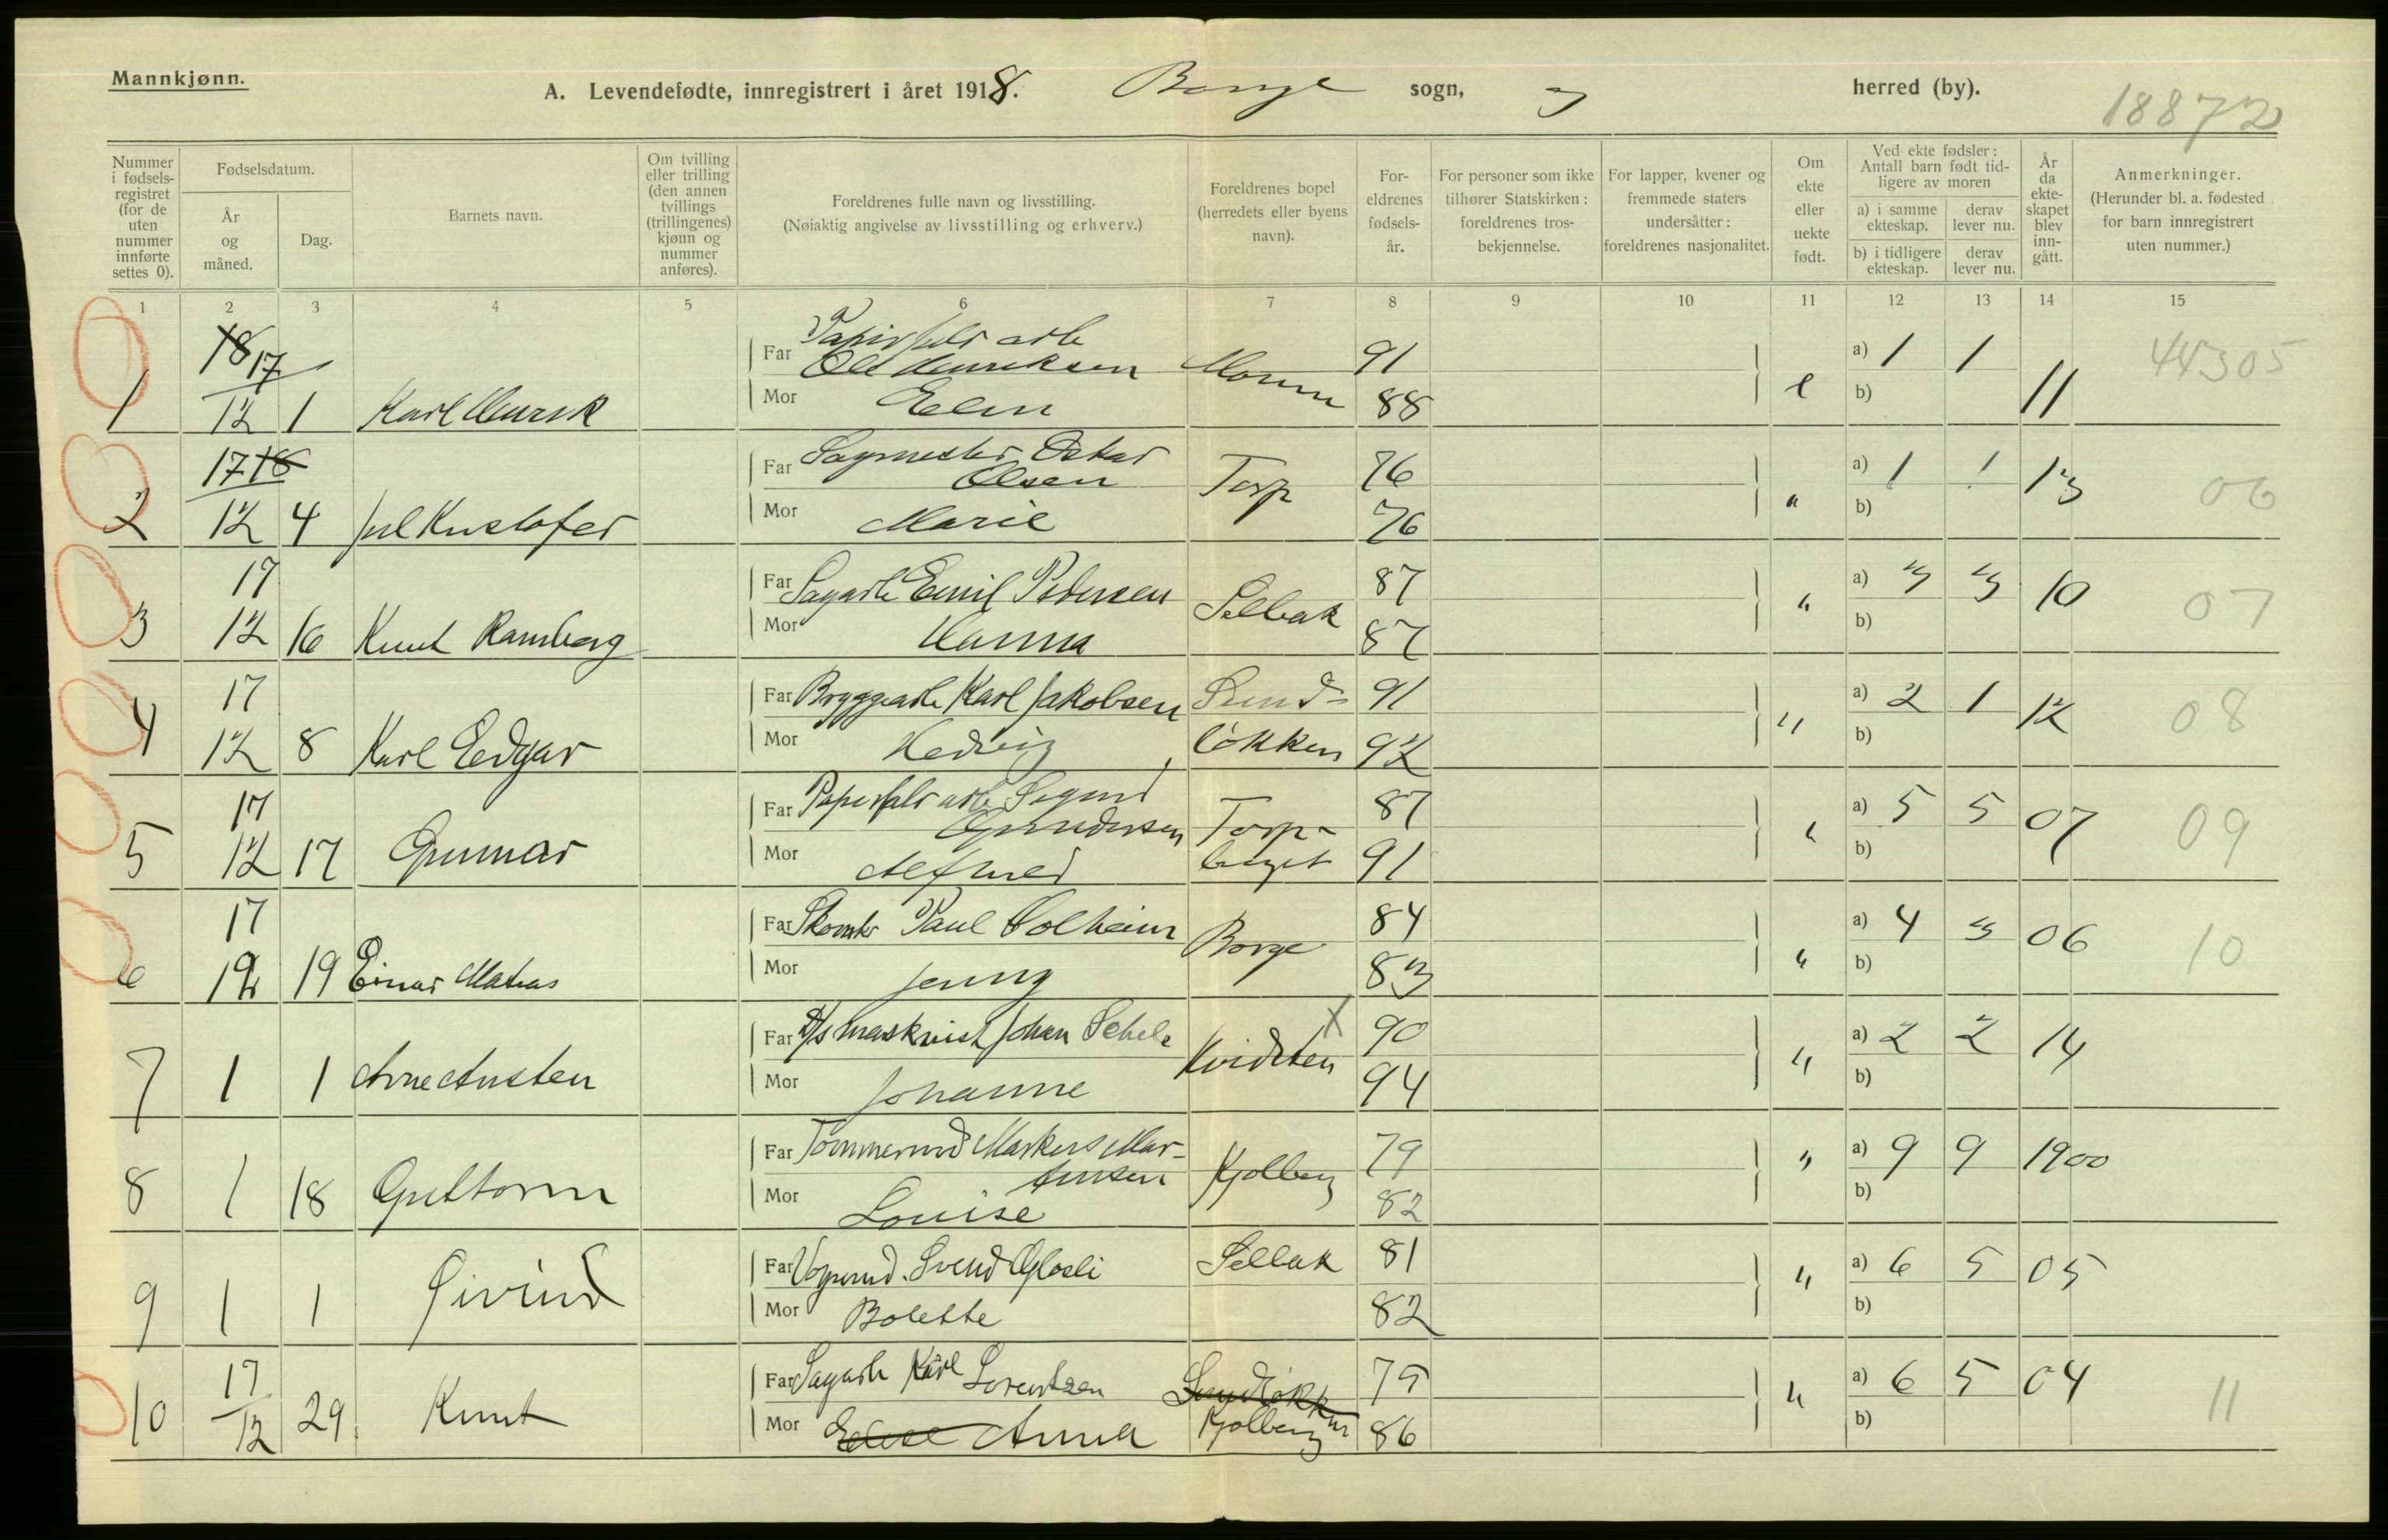 Mannkjønn.
A. Levendefødte, innregistrert i året 1918. Borge sogn, herred (by).
18872
Nummer i fødsels-registret (for de uten nummer innførte settes 0).
Fødselsdatum.
År og måned.
Dag.
Barnets navn.
Om tvilling eller trilling (den annen tvillings (trillingenes) kjønn og nummer anføres).
Foreldrenes fulle navn og livsstilling.
(Nøiaktig angivelse av livsstilling og erhverv.)
Foreldrenes bopel (herredets eller byens navn).
For-eldrenes fødsels-år.
For personer som ikke tilhører Statskirken: foreldrenes tros-bekjennelse.
For lapper, kvener og fremmede staters undersåtter: foreldrenes nasjonalitet.
Om ekte eller uekte født.
Ved ekte fødsler: Antall barn født tid-ligere av moren
a) i samme ekteskap. derav lever nu.
b) i tidligere ekteskap. derav lever nu.
År da ekte-skapet blev inn-gått.
Anmerkninger.
(Herunder bl. a. fødested for barn innregistrert uten nummer.)
1 2 3 4 5 6 7 8 9 10 11 12 13 14 15
18 17 Far Papirfabr arb 91 a) 1 1 44305
Ole Henriksen Momm
1 12 1 Karl Henrik Mor Elin 88 e b) 11
17 18 Far Sagmester Oskar 76 a) 1 1 13 06
Olsen Torp
2 12 4 Juel Kristofer Mor Marie 76 " b)
17 Far Sagarb Emil Pedersen 87 a) 3 3 10 07
3 12 16 Knut Ramberg Mor Hanna Selbak 87 " b)
17 Far Bryggearb Karl Jakobsen Sund- 91 a) 2 1 12 08
4 12 8 Karl Edgar Mor Hedvig løkken 92 " b)
17 Far Papirfabr arb Sigurd 87 a) 5 5 07 09
Gundersen Torp-
5 12 17 Gunnar Mor berget 91 " b)
17 Far Skomker Paul Solheim 84 a) 4 3 06 10
6 12 19 Einar Matias Mor Jenny Borge 83 " b)
Far D/s maskinist Johan Schele X 90 a) 2 2 14
7 1 1 Arne Austen Mor Johanne Kvidsten 94 " b)
Far Tømmermd Markus Mar- 79 a) 9 9 1900
tinsen Kjølberg
8 1 18 Guttorm Mor Louise 82 " b)
Far Vognmd. Svend Glosli Selbak 81 a) 6 5 05
9 1 1 Øivind Mor Bolette 82 " b)
17 Far Sagarb Karl Lorentzen Sundløkken 79 a) 6 5 04 11
10 12 29 Knut Mor Elise Anna Kjølberg 86 " b)